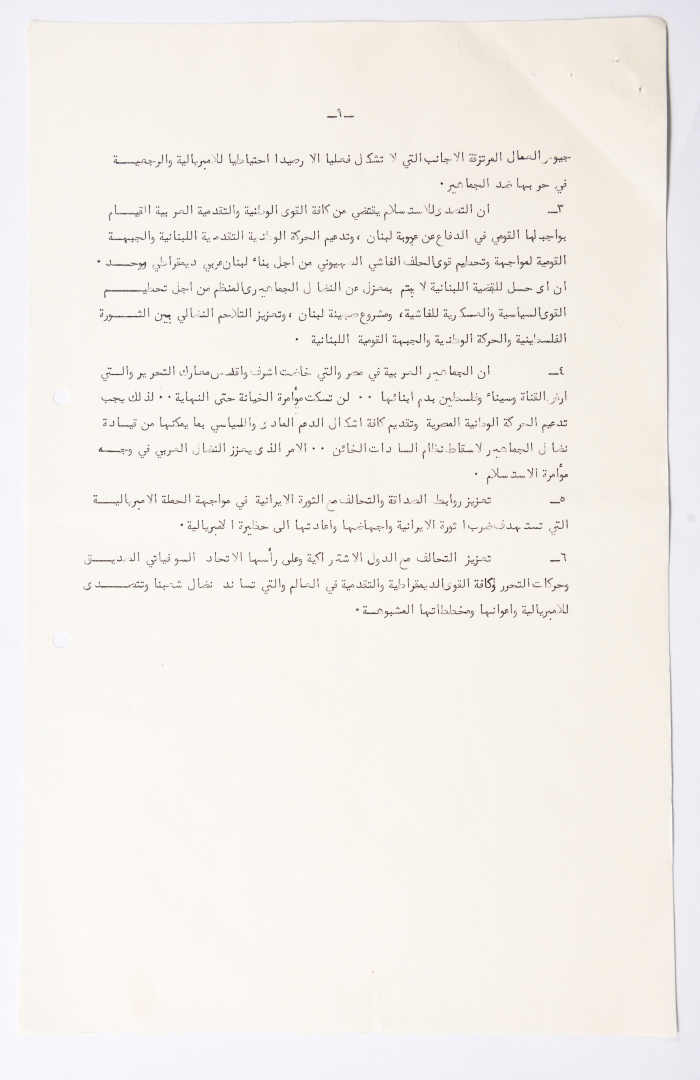 ـ٩ـ
جيوش العمال المرتزقة الاجانب التي لا تشكل فعليا الا رصيدا احتياطيا للامبريالية والرجعيـــة
في حربها ضد الجماهير .
٣ـ ان التصدى للاستسلام يقتضي من كافة القوى الوطنية والتقدمية العربية القيـــام
بواجبها القومي في الدفاع عن عروبة لبنان ، وتدعيم الحركة الوطنية التقدمية اللبنانية والجبهـة
القومية لمواجهة وتحطيم قوى الحلف الفاشي الصهيوني من اجل بناء لبنان عربي ديمقراطي موحـــد .
ان اى حسل للقضية اللبنانية لا يتم بمعزل عن النضال الجماهيرى المنظم من اجل تحطيـــم
القوى السياسية والعسكرية للفاشية ، ومشروع صهينة لبنان ، وتعزيز التلاحم النضالي بين الثـــورة
الفلسطينية والحركة الوطنية والجبهة القومية اللبنانية .
٤ـ ان الجماهير العربية في مصر والتي خاضت اشرف واقدس معارك التحرير والـــتي
ارض القناة وسيناء وفلسطين بدم ابنائها .. لن تسكت مؤامرة الخيانة حتى النهاية .. لذلك يجب
تدعيم الحركة الوطنية المصرية وتقديم كافة اشكال الدعم المادى والسياسي بما يمكنها من قيـادة
نضال الجماهير لاسقاط نظام السادات الخائن .. الامر الذى يعزز النضال العربي في وجـــه
مؤامرة الاستسلام .
٥ـ تعزيز روابط الصداقة والتحالف مع الثورة الايرانية في مواجهة الحملة الامبرياليـــة
التي تستهدف ضرب الثورة الايرانية واجهاضها واعادتها الى حظيرة الامبريالية .
٦ـ تعزيز التحالف مع الدول الاشتراكية وعلى رأسها الاتحاد السوفياتي الصديـــق
وحركات التحرر وكافة القوى الديمقراطية والتقدمية في العالم والتي تساند نضال شعبنا وتتصـــدى
للامبريالية واعوانها ومخططاتها المشبوهـــة .